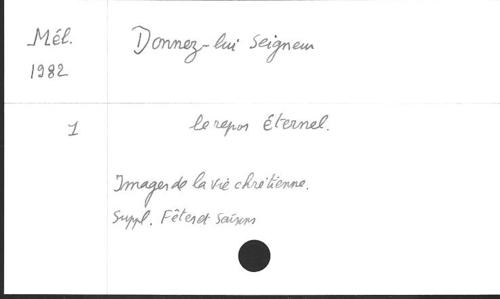 Mél. Donnez-lui Seigneur
1982
1 le repos Éternel.
Images de la vie chrétienne.
Suppl. Fêtes et Saisons